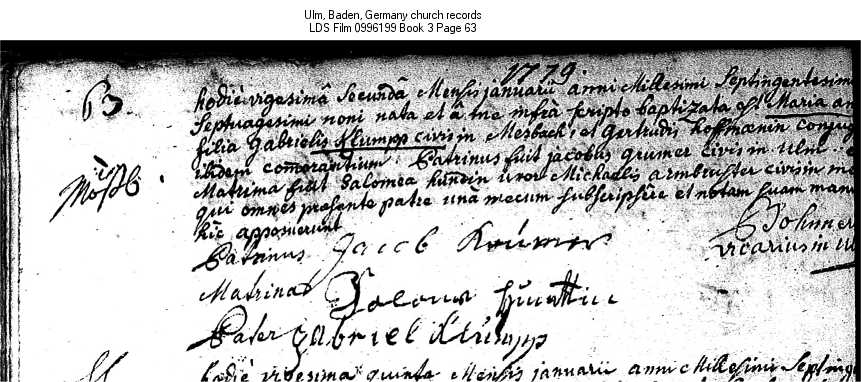 Ulm, Baden, Germany church records
LDS Film 0996199 Book 3 Page 63
1779.
63.
hodiè vigesimâ secundâ Mensis januarii anni Millesimi Septingentesimi
Septuagesimi noni nata et â me infrà scripto baptizata est Maria an
filia Gabrielis Klumpp civis in Mösbach, et Gertrudis hoffmännin conjug
ibidem comorantium. Patrinus fuit jacobus grumer civis in Ulm.
Matrina fuit Salomea hundin uxor Michaelis armbruster civis in mö
qui omnes præsente patre unâ mecum subscripsêre et notam suam manu
hic apposuerunt
in
Mösb.
Patrinus Jacob
vicarius in U
Matrina
Pater gabriel Klumpp
hodiè vigesima quinta Mensis januarii anni Millesimi Septing